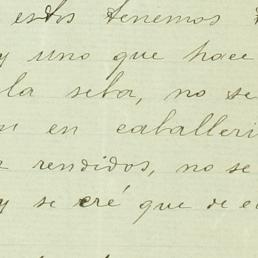 estos tenemos
y uno que hace
la seba, no se
en caballeri
rendidos, no se
y se cré que de